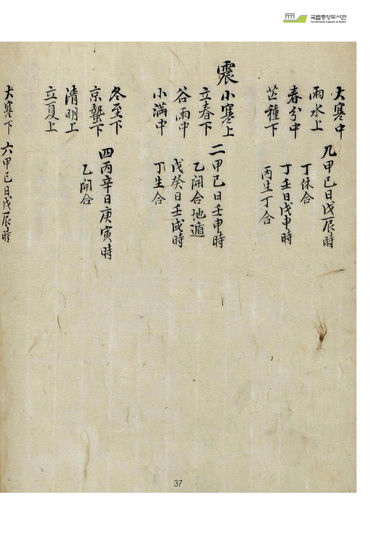 국립중앙도서관
大寒中 九甲己日戊辰時
雨水上 丁休合
春分中 丁壬日戊申時
芒種下 丙生丁合
震 小寒上 二甲己日壬申時
立春下 乙開合地遁
谷雨中 戊癸日壬戌時
小滿中 丁生合
冬至下 四丙辛日庚寅時
京蟄下 乙開合
清明上
立夏上
大寒下 六甲己日戊辰時
37